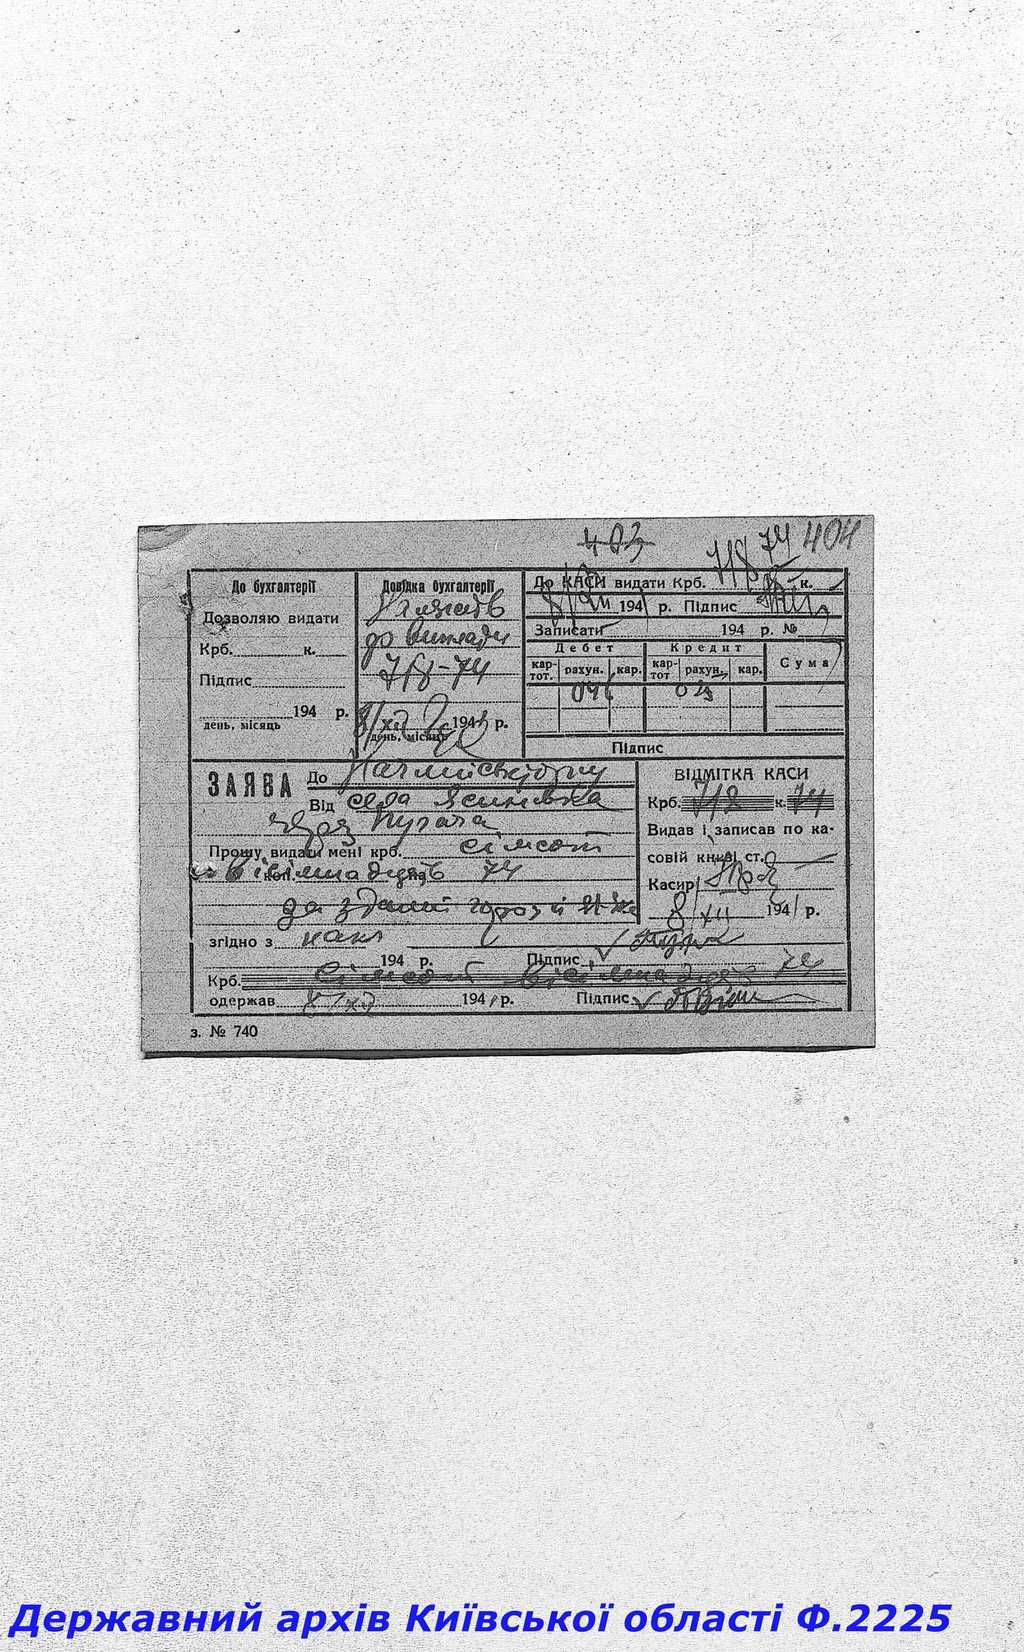 403
718 74 404
До бухгалтерії
Дозволяю видати
Крб. к.
Підпис
194 р.
день, місяць
Довідка бухгалтерії
Належить
до видачи
718-74
8/XII 1941 р.
день, місяць
До КАСИ видати Крб. 718 74 к.
8/XII 1941 р. Підпис
Записати 194 р. №
Дебет Кредит Сума
кар-тот. рахун. кар. кар-тот рахун. кар.
046 023
Підпис
ЗАЯВА До
Від села Ясинівка
Пугача
Прошу видати мені крб. сімсот
вісімнадцять 74
коп. на
за здані
згідно з накл
194 р. Підпис
Крб. Сімсот вісімнадцять 74
одержав 8/XII 1941 р. Підпис
ВІДМІТКА КАСИ
Крб. 718 к. 74
Видав і записав по ка-
совій книзі ст.
Касир
8/XII 1941 р.
з. № 740
Державний архів Київської області Ф.2225